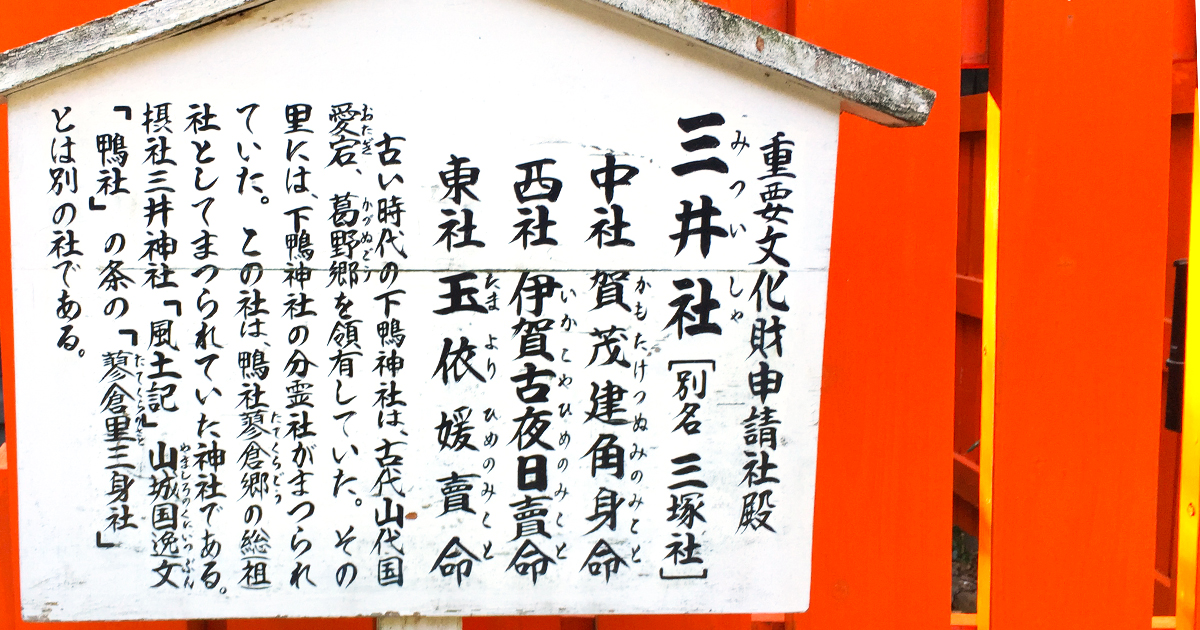 重要文化財申請社殿
三井社[別名 三塚社]
みついしゃ
中社 賀茂建角身命
かもたけつぬみのみこと
西社 伊賀古夜日賣命
いかこやひめのみこと
東社 玉依媛賣命
たまよりひめのみこと
古い時代の下鴨神社は、古代山代国
愛宕、葛野郷を領有していた。その
おたぎ かづぬごう
里には、下鴨神社の分霊社がまつられ
ていた。この社は、鴨社蓼倉郷の総祖
たてくらごう
社としてまつられていた神社である。
摂社三井神社「風土記」山城国逸文
やましろのくにいつぶん
「鴨社」の条の「蓼倉里三身社」
とは別の社である。